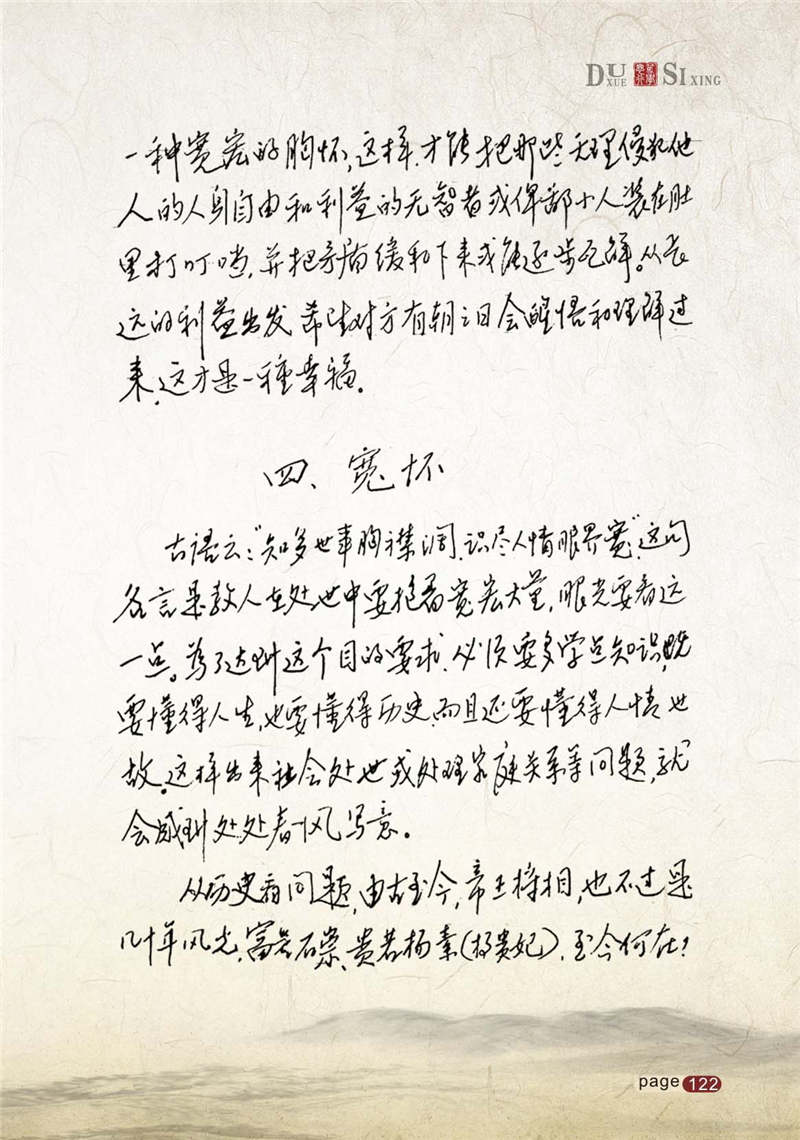 DUXUE SIXING
一种宽宏的胸怀,这样,才能把那些无理侵犯他
人的人身自由和利益的无智者或俾鄙小人装在肚
里打叮当,并把矛盾缓和下来或能逐步瓦解。从长
远的利益出发,希望对方有朝一日会醒悟和理解过
来,这才是一种幸福。
四、宽怀
古语云:“知多世事胸襟阔,识尽人情眼界宽”,这句
名言是教人在处世中要抱着宽宏大量,眼光要看远
一点。为了达到这个目的要求,必须要多学点知识,既
要懂得人生,也要懂得历史,而且还要懂得人情世
故。这样出来社会处世或处理家庭关系等问题,就
会感到处处春风写意。
从历史看问题,由古至今,帝王将相,也不过是
几十年风光,富若石崇、贵若杨素(杨贵妃),至今何在?
page 122